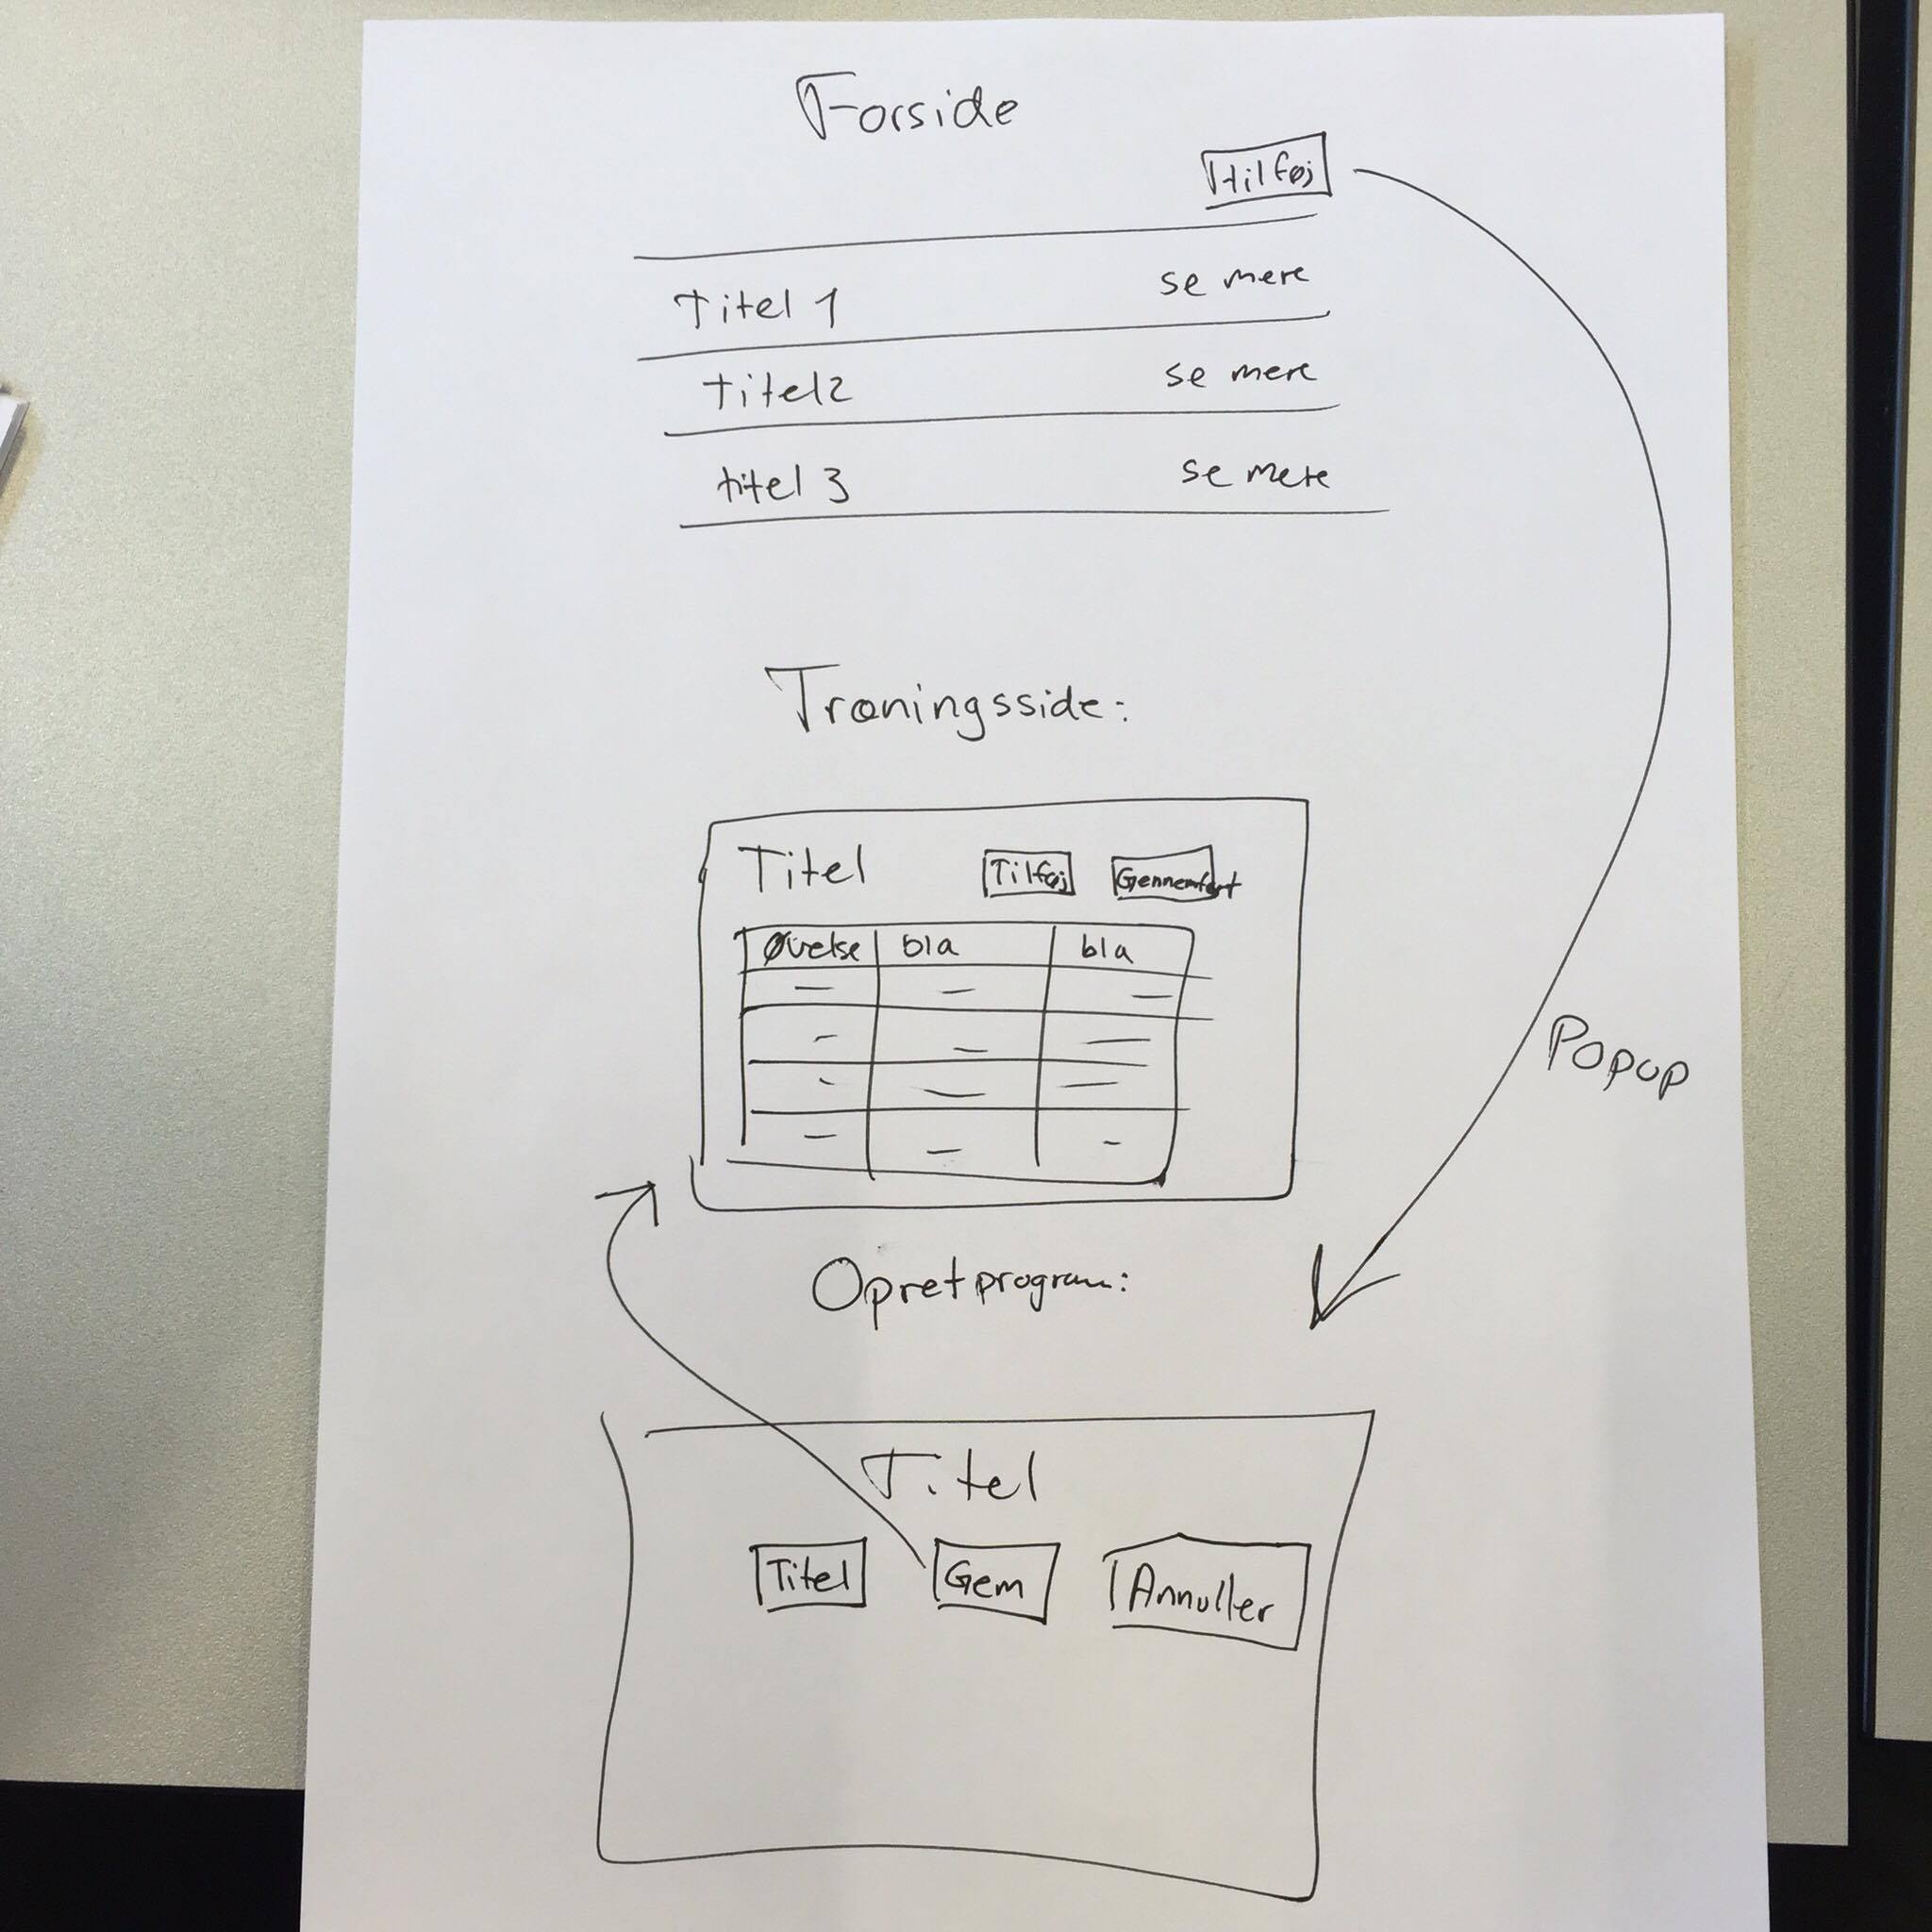 Forside
tilføj
Titel 1 se mere
Titel2 se mere
titel 3 se mere
Træningsside:
Titel Tilføj Gennemført
Øvelse bla bla
Popup
Opret program:
Titel
Titel Gem Annuller